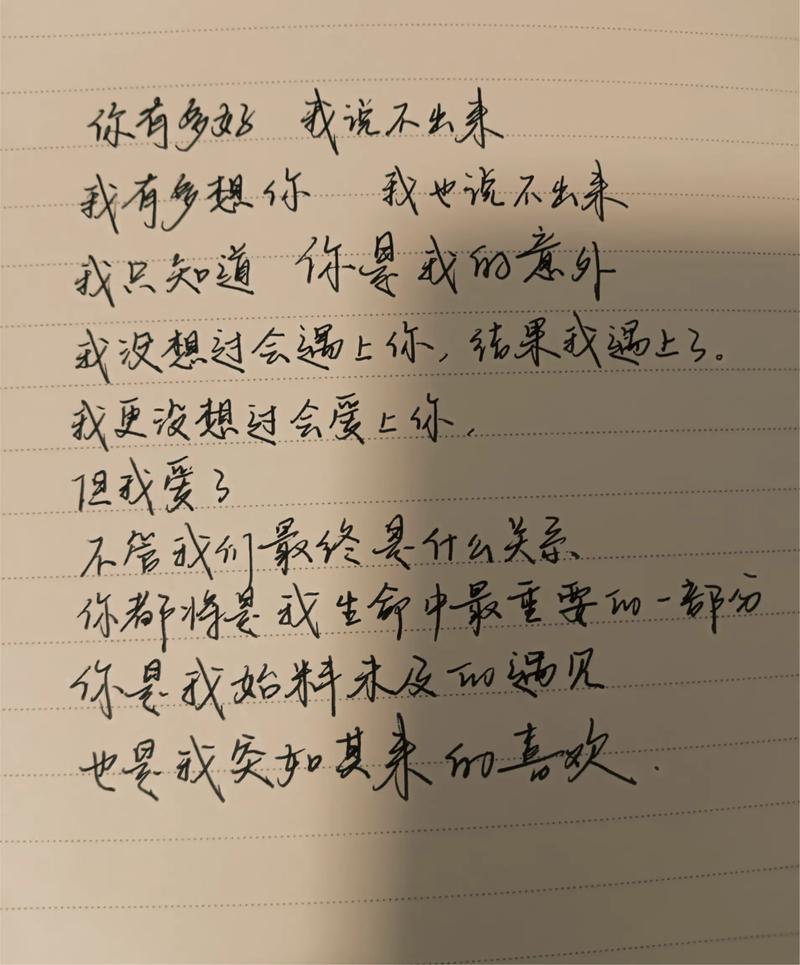 你有多好 我说不出来
我有多想你 我也说不出来
我只知道 你是我的意外
我没想过会遇上你，结果我遇上了。
我更没想过会爱上你，
但我爱了
不管我们最终是什么关系
你都将是我生命中最重要的一部分
你是我始料未及的遇见
也是我突如其来的喜欢.